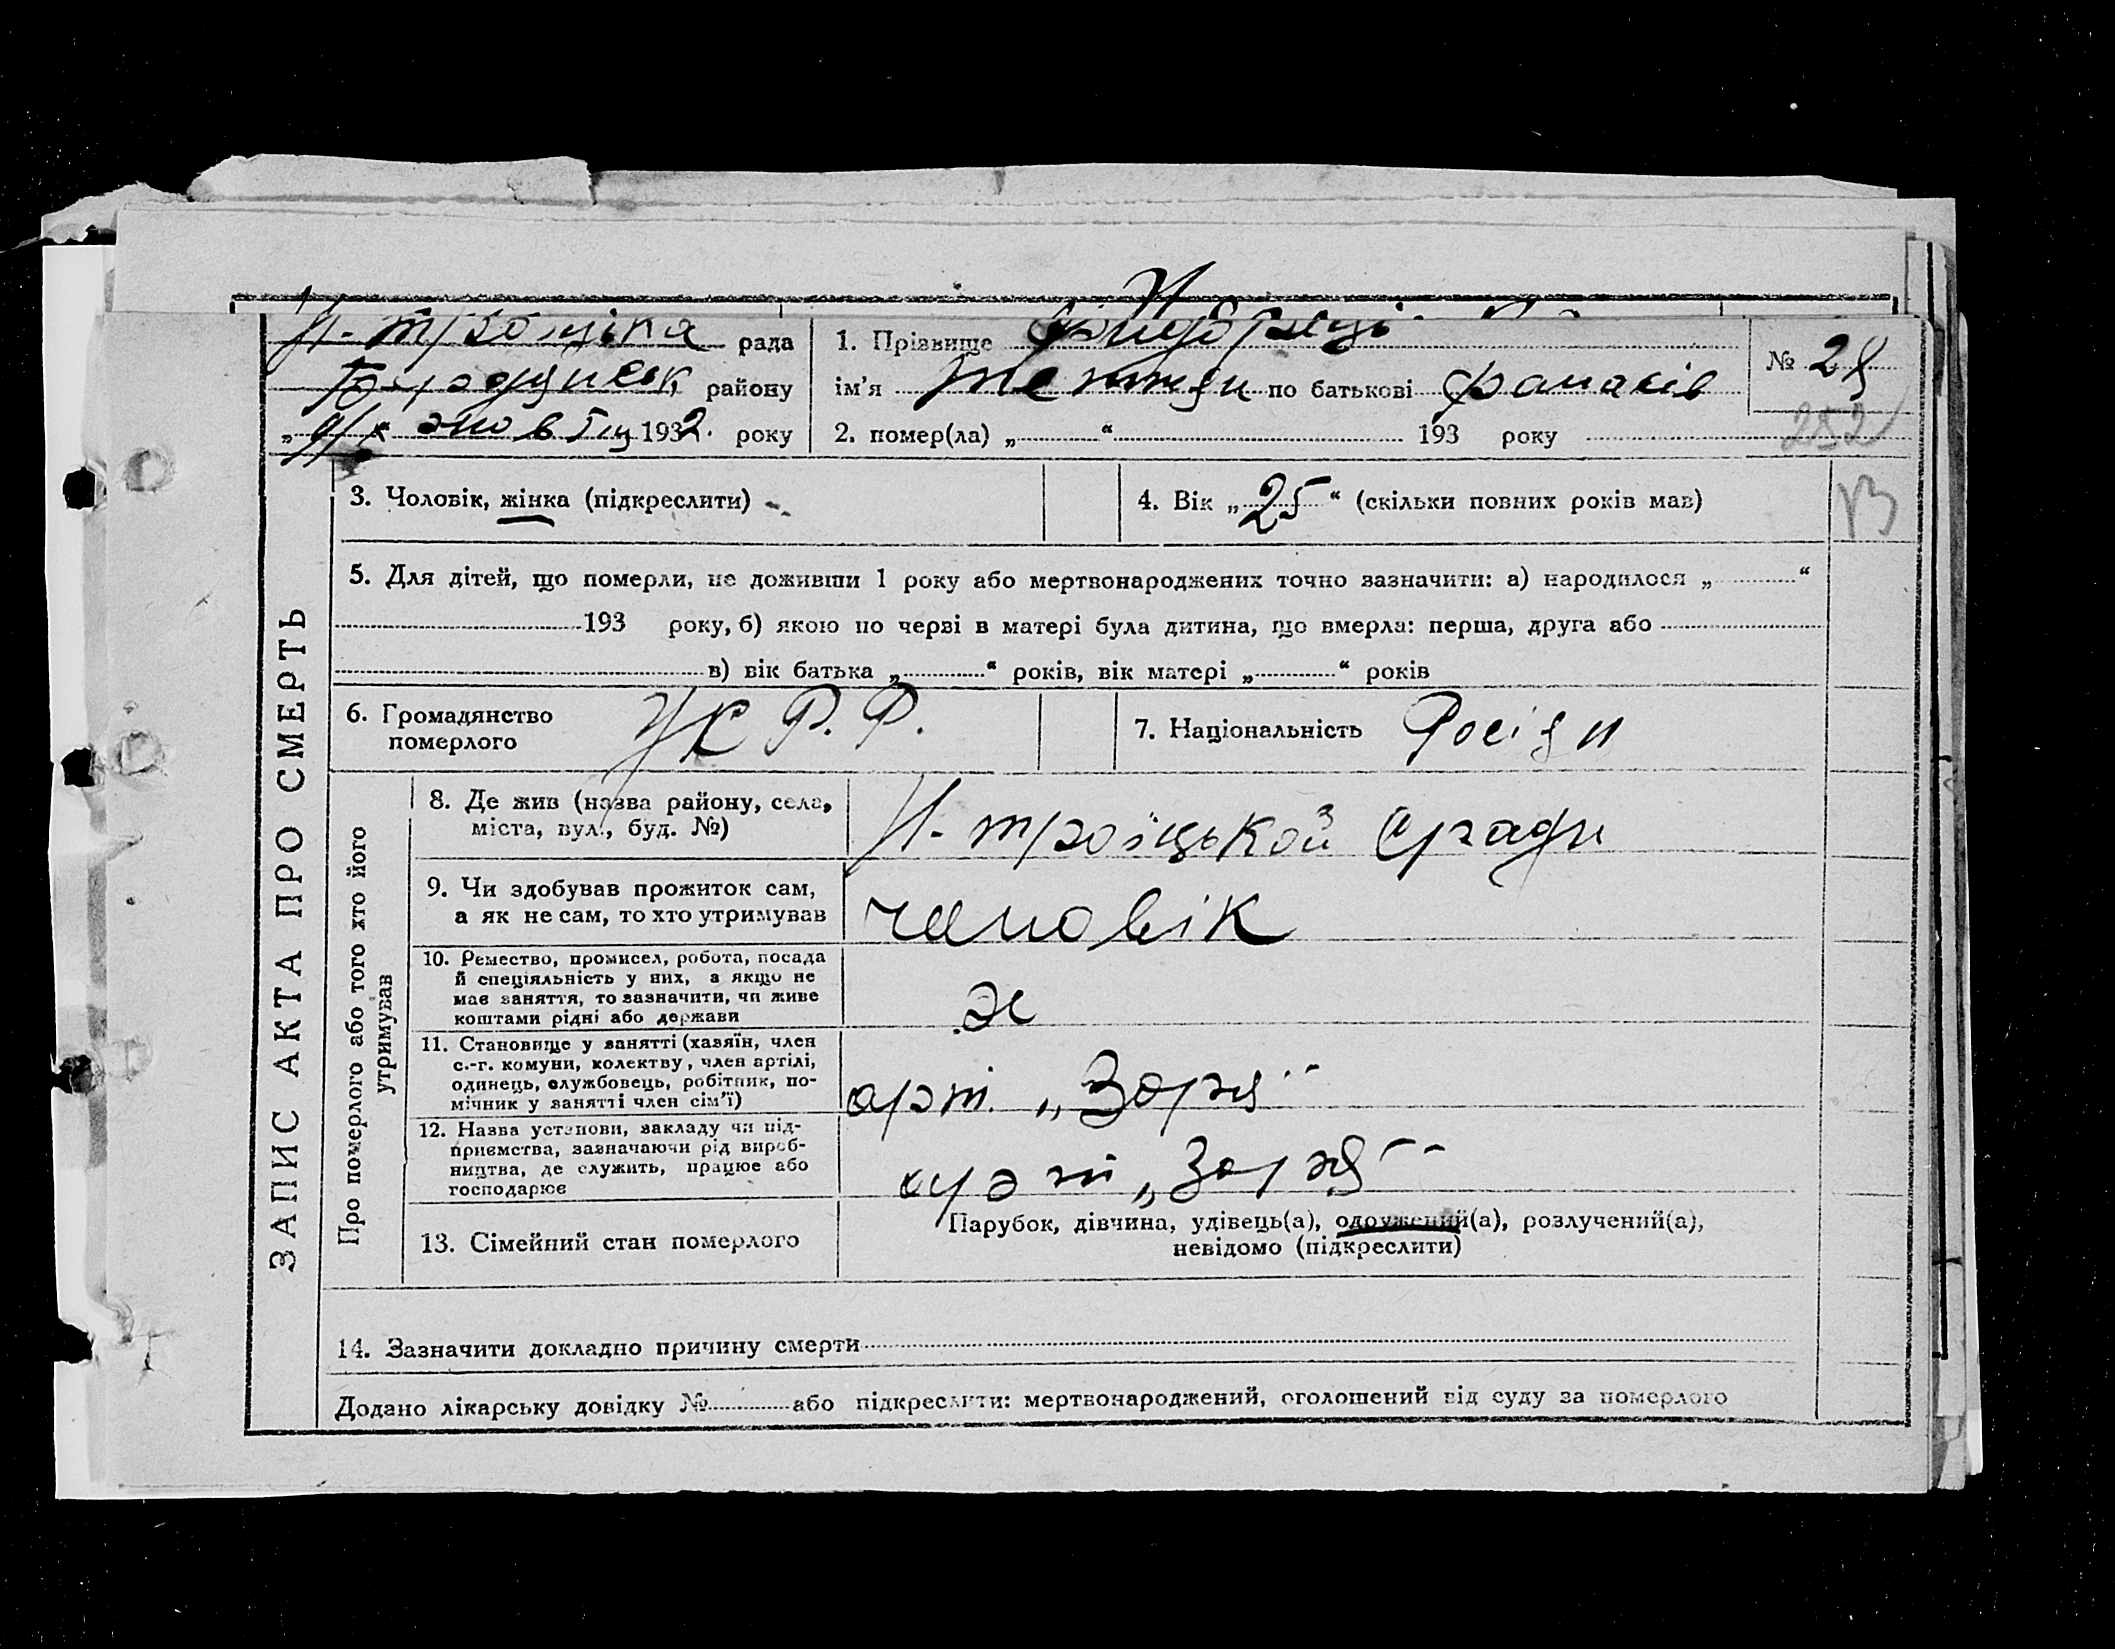 рада
1. Прізвище
району
ім'я по батькові
№ 28
1932. року
2. помер(ла) „ “ 193 року
252
ЗАПИС АКТА ПРО СМЕРТЬ
3. Чоловік, жінка (підкреслити)
4. Вік „25“ (скільки повних років мав)
5. Для дітей, що померли, не доживши 1 року або мертвонароджених точно зазначити: а) народилося „ “
193 року, б) якою по черзі в матері була дитина, що вмерла: перша, друга або
в) вік батька „ “ років, вік матері „ “ років
6. Громадянство
померлого
7. Національність
Про померлого або того хто його
утримував
8. Де жив (назва району, села,
міста, вул., буд. №)
Н-троїцькой
9. Чи здобував прожиток сам,
а як не сам, то хто утримував
чоловік
10. Ремество, промисел, робота, посада
й спеціяльність у них, а якщо не
має заняття, то зазначити, чи живе
коштами рідні або держави
11. Становище у занятті (хазяїн, член
с.-г. комуни, колективу, член артілі,
одинець, службовець, робітник, по-
мічник у занятті член сім'ї)
арт. „Зоря"
12. Назва установи, закладу чи під-
приємства, зазначаючи рід вироб-
ництва, де служить, працює або
господарює
„Зоря"
13. Сімейний стан померлого
Парубок, дівчина, удівець(а), одружений(а), розлучений(а),
невідомо (підкреслити)
14. Зазначити докладно причину смерти
Додано лікарську довідку № або підкреслити: мертвонароджений, оголошений від суду за померлого